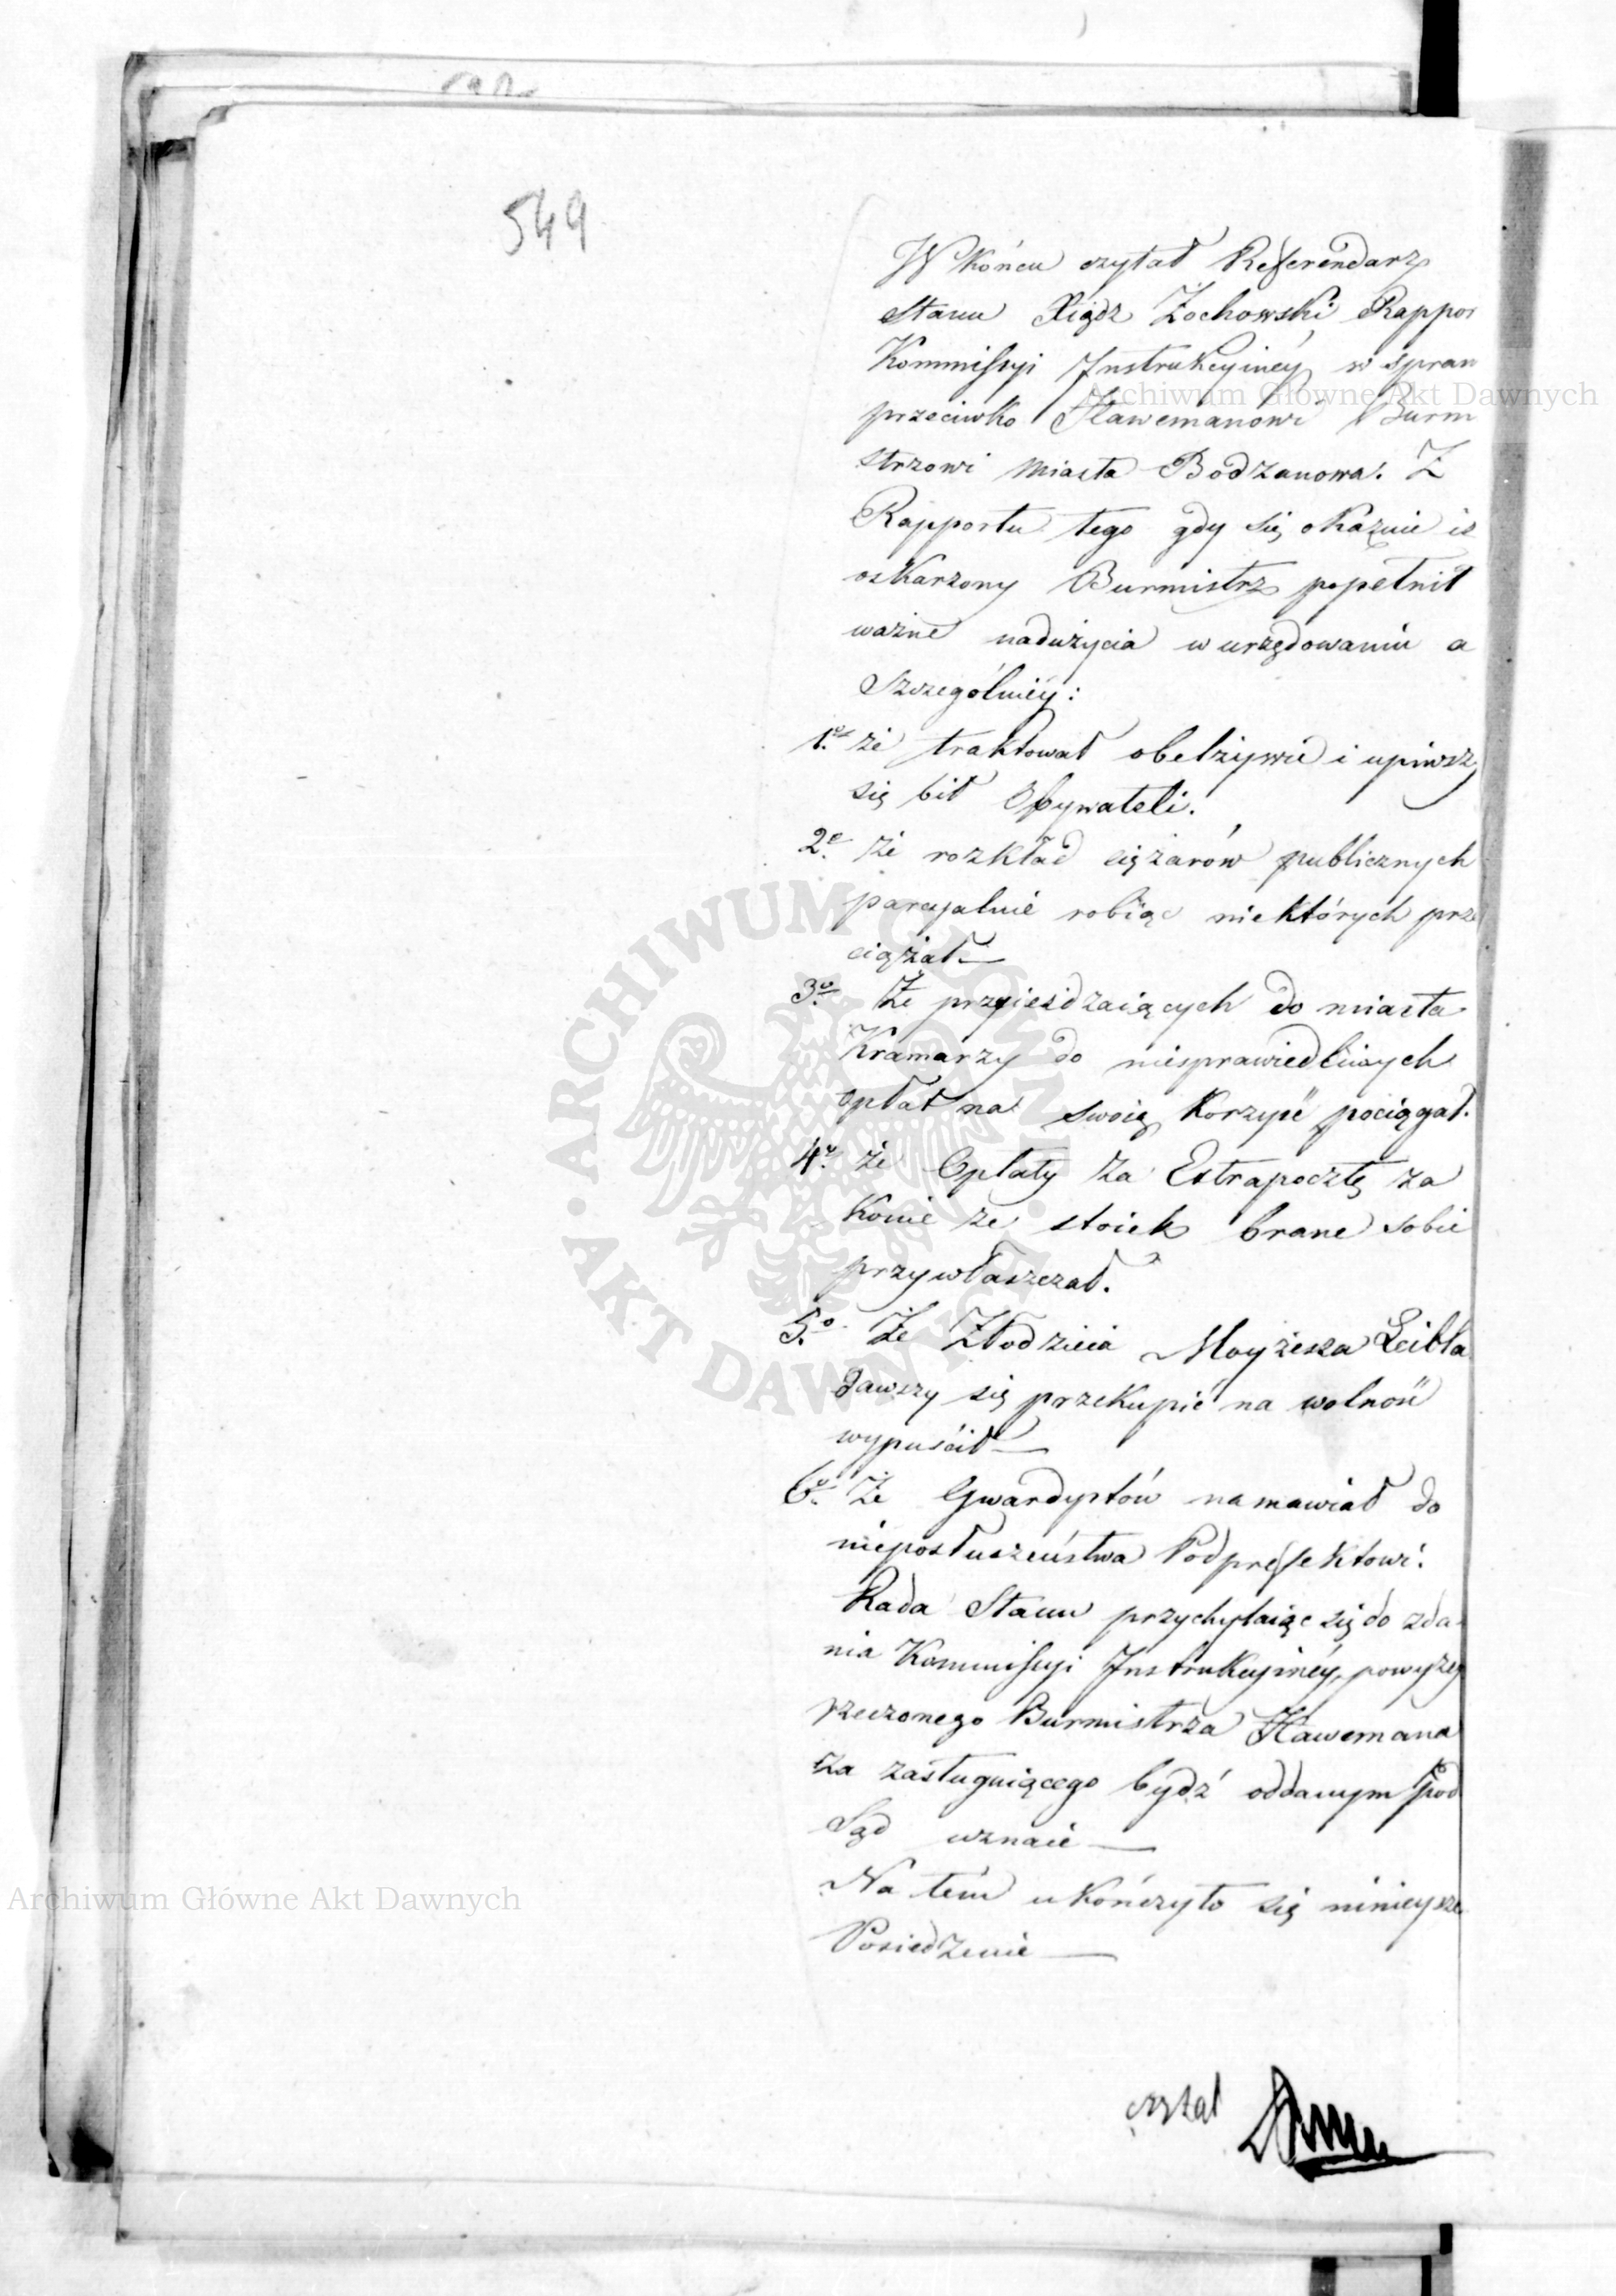 549
W końcu czytał Referendarz
Stanu Xiądz Żochowski Rappor
Kommissyi Instrukcyiney w spraw
przeciwko Hawemanowi Burm
strzowi miasta Bodzanowa. Z
Rapportu tego gdy się okazuie iż
oskarzony Burmistrz popełnił
ważne nadużycia w urzędowaniu a
Szczególniéy:
1o że traktował obelżywie i upiwszy
się bił Obywateli.
2o że rozkład ciężarów publicznych
parcyalnie robiąc niektórych prze
ciążał —
3o Że przyieżdzaiących do miasta
Kramarzy do niesprawiedliwych
opłat na swoią korzyść pociągał.
4o że Opłaty za Extrapocztę za
konie ze stoiek brane sobie
przywłaszczał.
5o Że Złodzieia Moyżesza Leibla
dawszy się przekupić na wolność
wypuścił —
6o Że Gwardystów namawiał do
nieposłuszeństwa Podprefektowi.
Rada Stanu przychylaiąc się do zda-
nia Kommissyi Instrukcyinéy, powyżey
rzeczonego Burmistrza Hawemana
za zasługuiącego bydź oddanym pod
Sąd uznaie —
Na tém ukończyło się ninieysze
Posiedzenie —
czytał
Archiwum Główne Akt Dawnych
Archiwum Główne Akt Dawnych
ARCHIWUM GŁÓWNE · AKT DAWNYCH ·